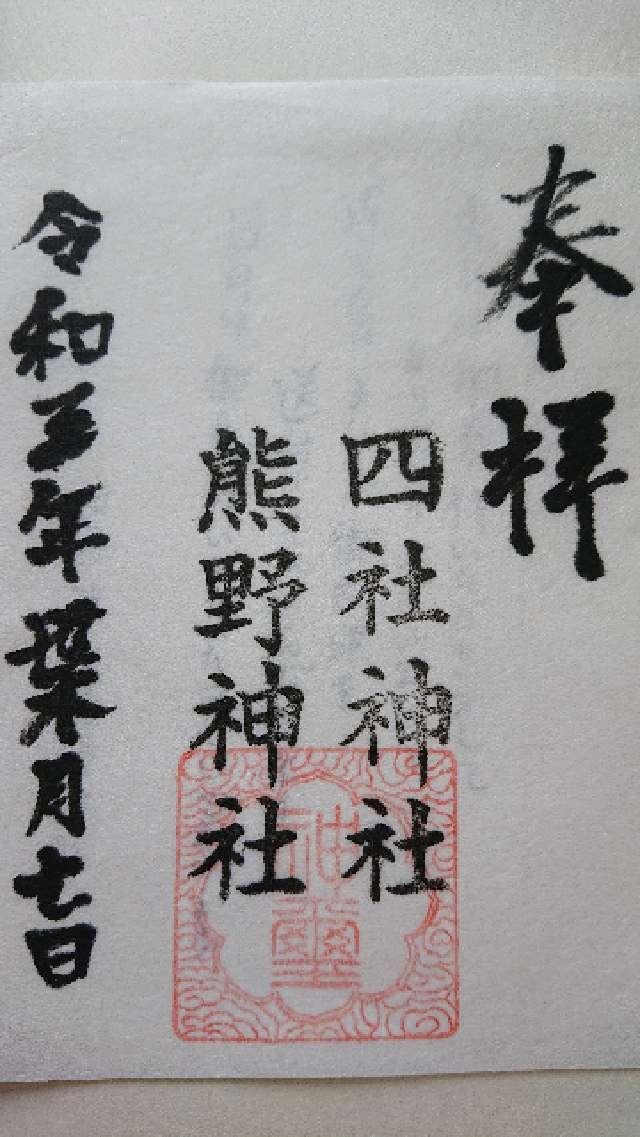 奉拝
四社神社
熊野神社
令和五年葉月七日
神璽